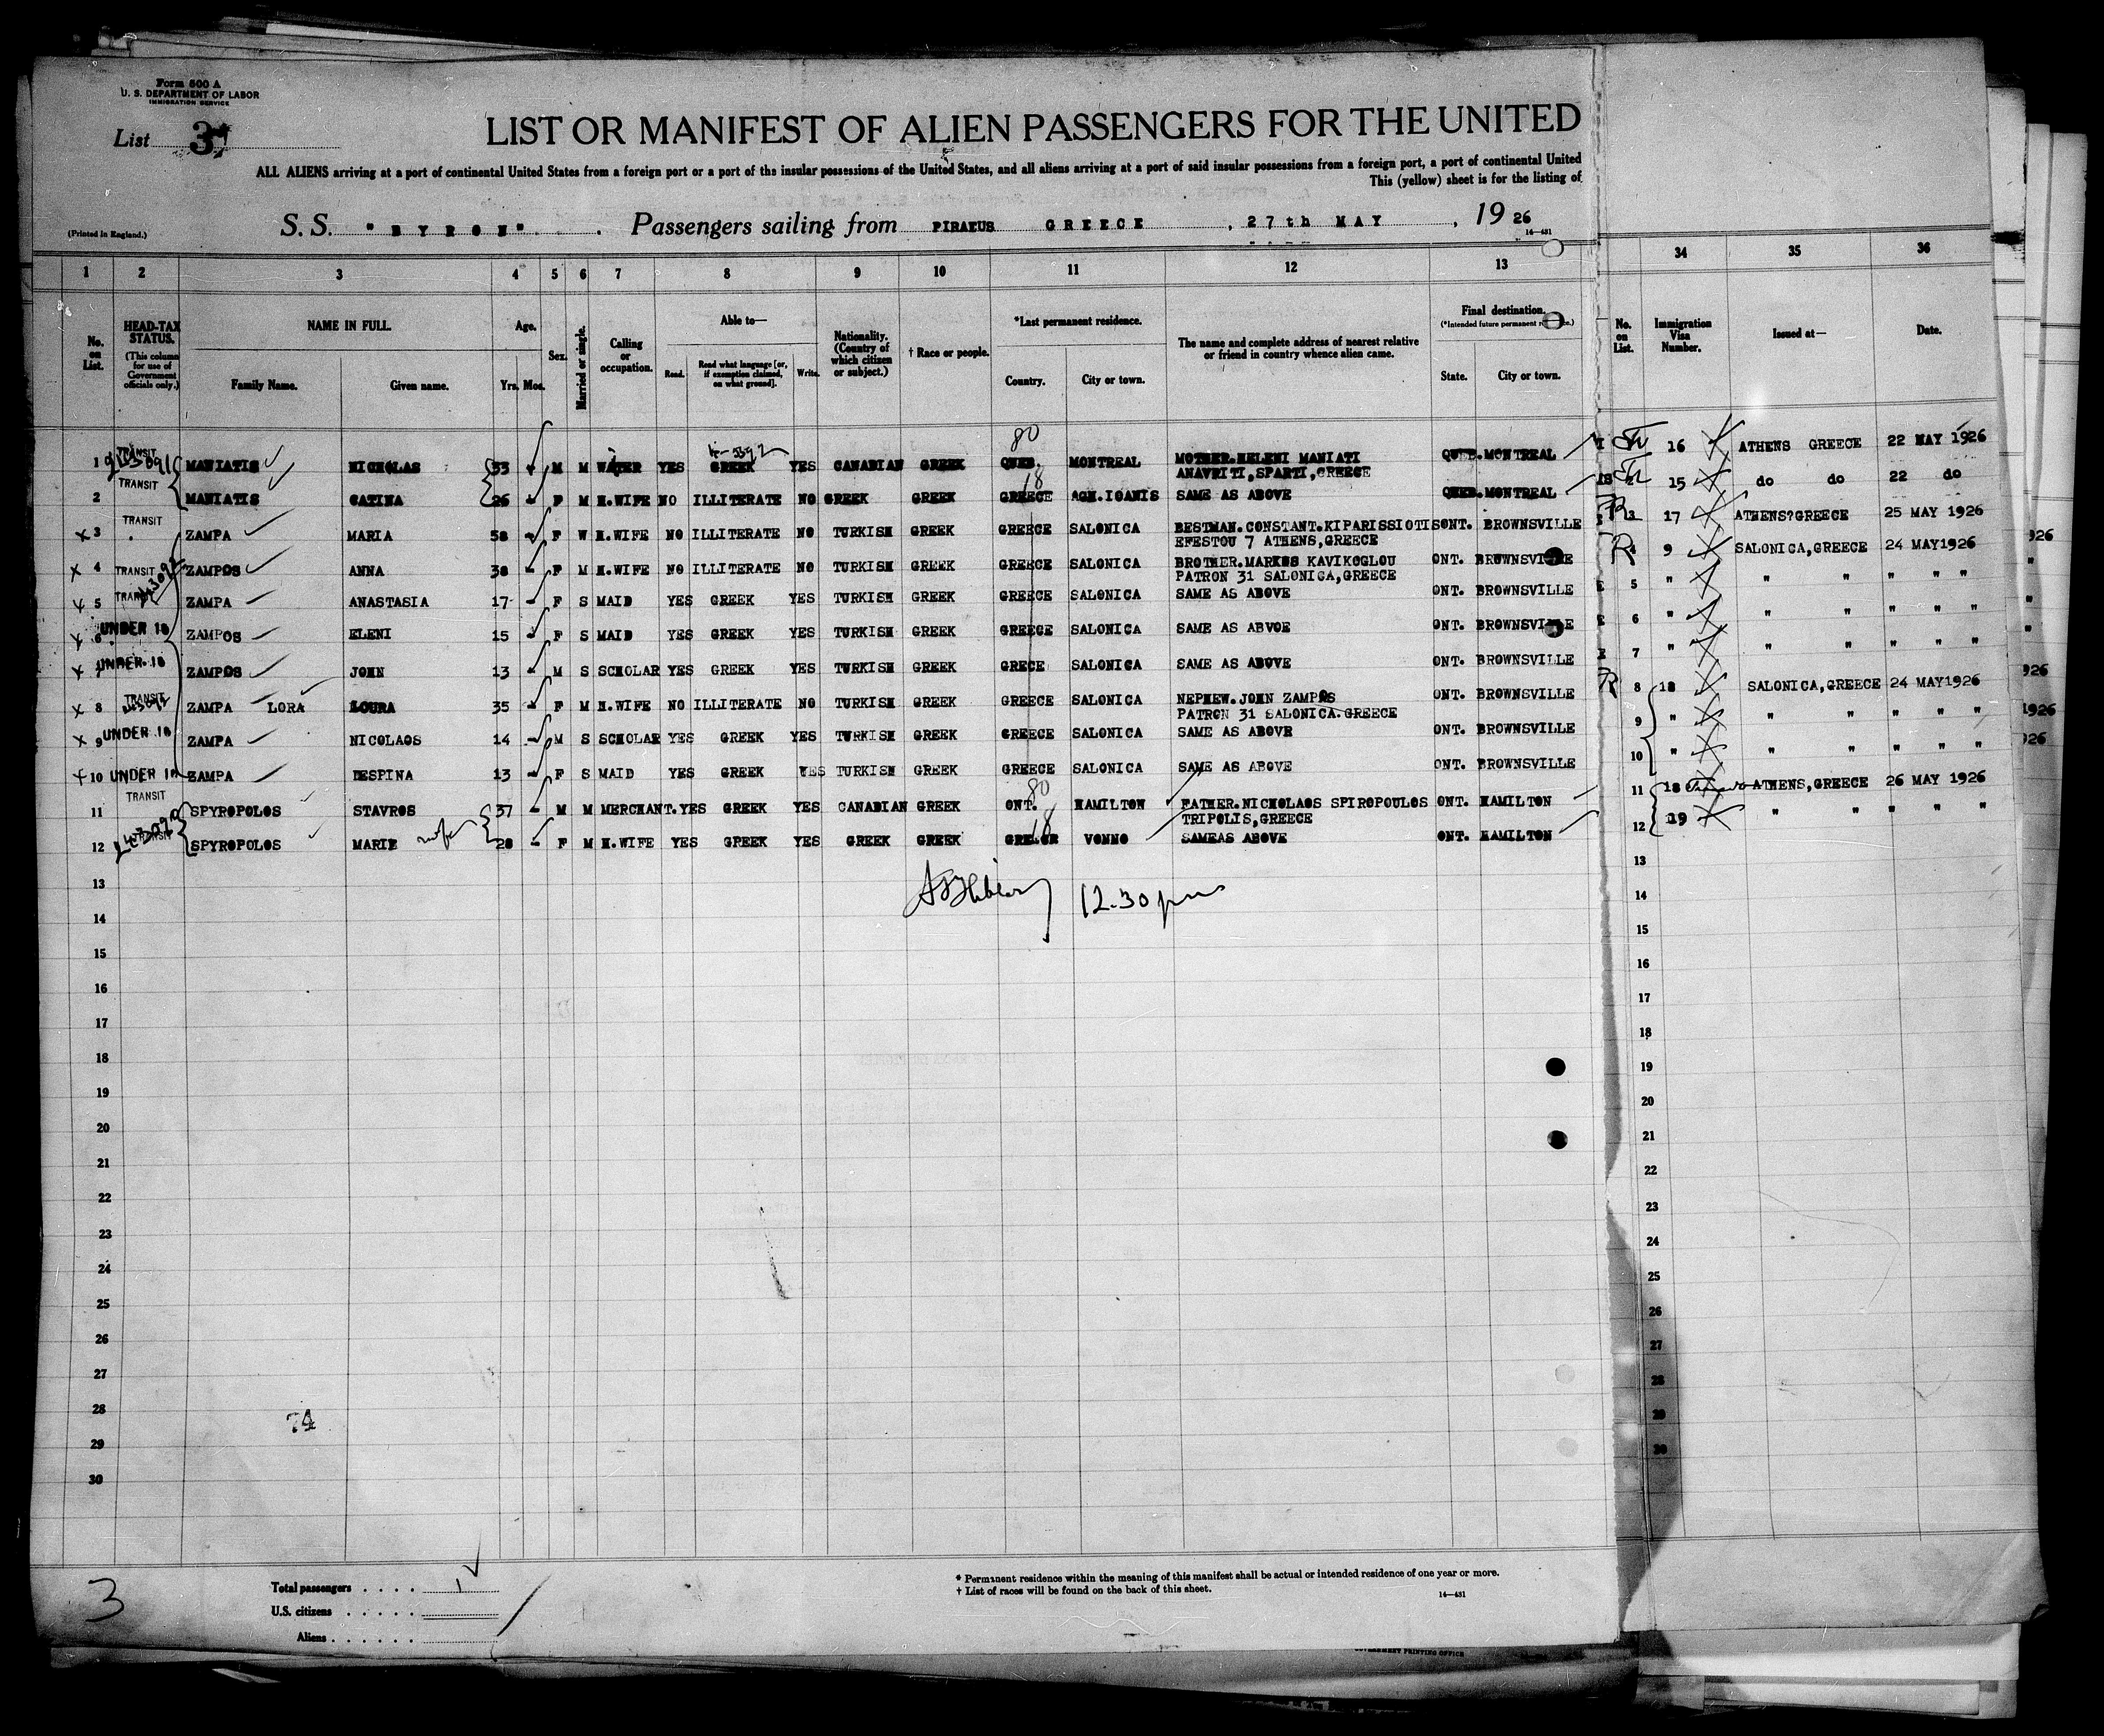 Form 500 A
U. S. DEPARTMENT OF LABOR
IMMIGRATION SERVICE
List 37
LIST OR MANIFEST OF ALIEN PASSENGERS FOR THE UNITED
ALL ALIENS arriving at a port of continental United States from a foreign port or a port of the insular possessions of the United States, and all aliens arriving at a port of said insular possessions from a foreign port, a port of continental United
This (yellow) sheet is for the listing of
(Printed in England.)
S. S. "BYRON" . Passengers sailing from PIRAEUS GREECE , 27th MAY , 19 26
14—431
1 2 3 4 5 6 7 8 9 10 11 12 13 34 35 36
No. on List.
HEAD-TAX STATUS.
(This column for use of Government officials only.)
NAME IN FULL.
Family Name. Given name.
Age.
Yrs. Mos.
Sex.
Married or single.
Calling or occupation.
Able to—
Read. Read what language [or, if exemption claimed, on what ground]. Write.
Nationality. (Country of which citizen or subject.)
† Race or people.
*Last permanent residence.
Country. City or town.
The name and complete address of nearest relative or friend in country whence alien came.
Final destination.
(*Intended future permanent
State. City or town.
No. on List.
Immigration Visa Number.
Issued at—
Date.
1 TRANSIT MANIATIS NICHOLAS 33 M M WAITER YES GREEK YES CANADIAN GREEK QUEB. MONTREAL MOTHER.HELENI MANIATI QUEB.MONTREAL 16 ATHENS GREECE 22 MAY 1926
80
ANAVRITI,SPARTI,GREECE
2 TRANSIT MANIATIS CATINA 26 F M H.WIFE NO ILLITERATE NO GREEK GREEK GREECE AGH.IOANIS SAME AS ABOVE QUEB.MONTREAL 15 do do 22 do
18
3 TRANSIT ZAMPA MARIA 58 F W H.WIFE NO ILLITERATE NO TURKISH GREEK GREECE SALONICA BESTMAN.CONSTANT.KIPARISSIOTIS ONT. BROWNSVILLE 3 17 ATHENS?GREECE 25 MAY 1926
EFESTOU 7 ATHENS,GREECE
4 TRANSIT ZAMPOS ANNA 38 F M H.WIFE NO ILLITERATE NO TURKISH GREEK GREECE SALONICA BROTHER.MARKOS KAVIKOGLOU ONT. BROWNSVILLE 4 9 SALONICA,GREECE 24 MAY1926
PATRON 31 SALONICA,GREECE
5 TRANSIT ZAMPA ANASTASIA 17 F S MAID YES GREEK YES TURKISH GREEK GREECE SALONICA SAME AS ABOVE ONT. BROWNSVILLE 5 " " " " " "
6 UNDER 16 ZAMPOS ELENI 15 F S MAID YES GREEK YES TURKISH GREEK GREECE SALONICA SAME AS ABVOE ONT. BROWNSVILLE 6 " " " " " "
7 UNDER 16 ZAMPOS JOHN 13 M S SCHOLAR YES GREEK YES TURKISH GREEK GRECE SALONICA SAME AS ABOVE ONT. BROWNSVILLE 7 " " " " " "
8 TRANSIT ZAMPA LORA LOURA 35 F M H.WIFE NO ILLITERATE NO TURKISH GREEK GREECE SALONICA NEPHEW.JOHN ZAMPOS ONT. BROWNSVILLE 8 18 SALONICA,GREECE 24 MAY1926
PATRON 31 SALONICA.GREECE
9 UNDER 16 ZAMPA NICOLAOS 14 M S SCHOLAR YES GREEK YES TURKISH GREEK GREECE SALONICA SAME AS ABOVE ONT. BROWNSVILLE 9 " " " " " "
10 UNDER 16 ZAMPA DESPINA 13 F S MAID YES GREEK YES TURKISH GREEK GREECE SALONICA SAME AS ABOVE ONT. BROWNSVILLE 10 " " " " " "
11 TRANSIT SPYROPOLOS STAVROS 37 M M MERCHANT.YES GREEK YES CANADIAN GREEK ONT. HAMILTON FATHER.NICHOLAOS SPIROPOULOS ONT. HAMILTON 11 18 ATHENS,GREECE 26 MAY 1926
80
TRIPOLIS,GREECE
12 TRANSIT SPYROPOLOS MARIE wife 28 F M H.WIFE YES GREEK YES GREEK GREEK VONNO SAMEAS ABOVE ONT. HAMILTON 12 19 " " " " "
18
12.30 pm
13 13
14 14
15 15
16 16
17 17
18 18
19 19
20 20
21 21
22 22
23 23
24 24
25 25
26 26
27 27
28 28
29 29
30 30
74
3
Total passengers . . . .
U.S. citizens . . . . .
Aliens . . . . . .
* Permanent residence within the meaning of this manifest shall be actual or intended residence of one year or more.
† List of races will be found on the back of this sheet.
14—431
GOVERNMENT PRINTING OFFICE